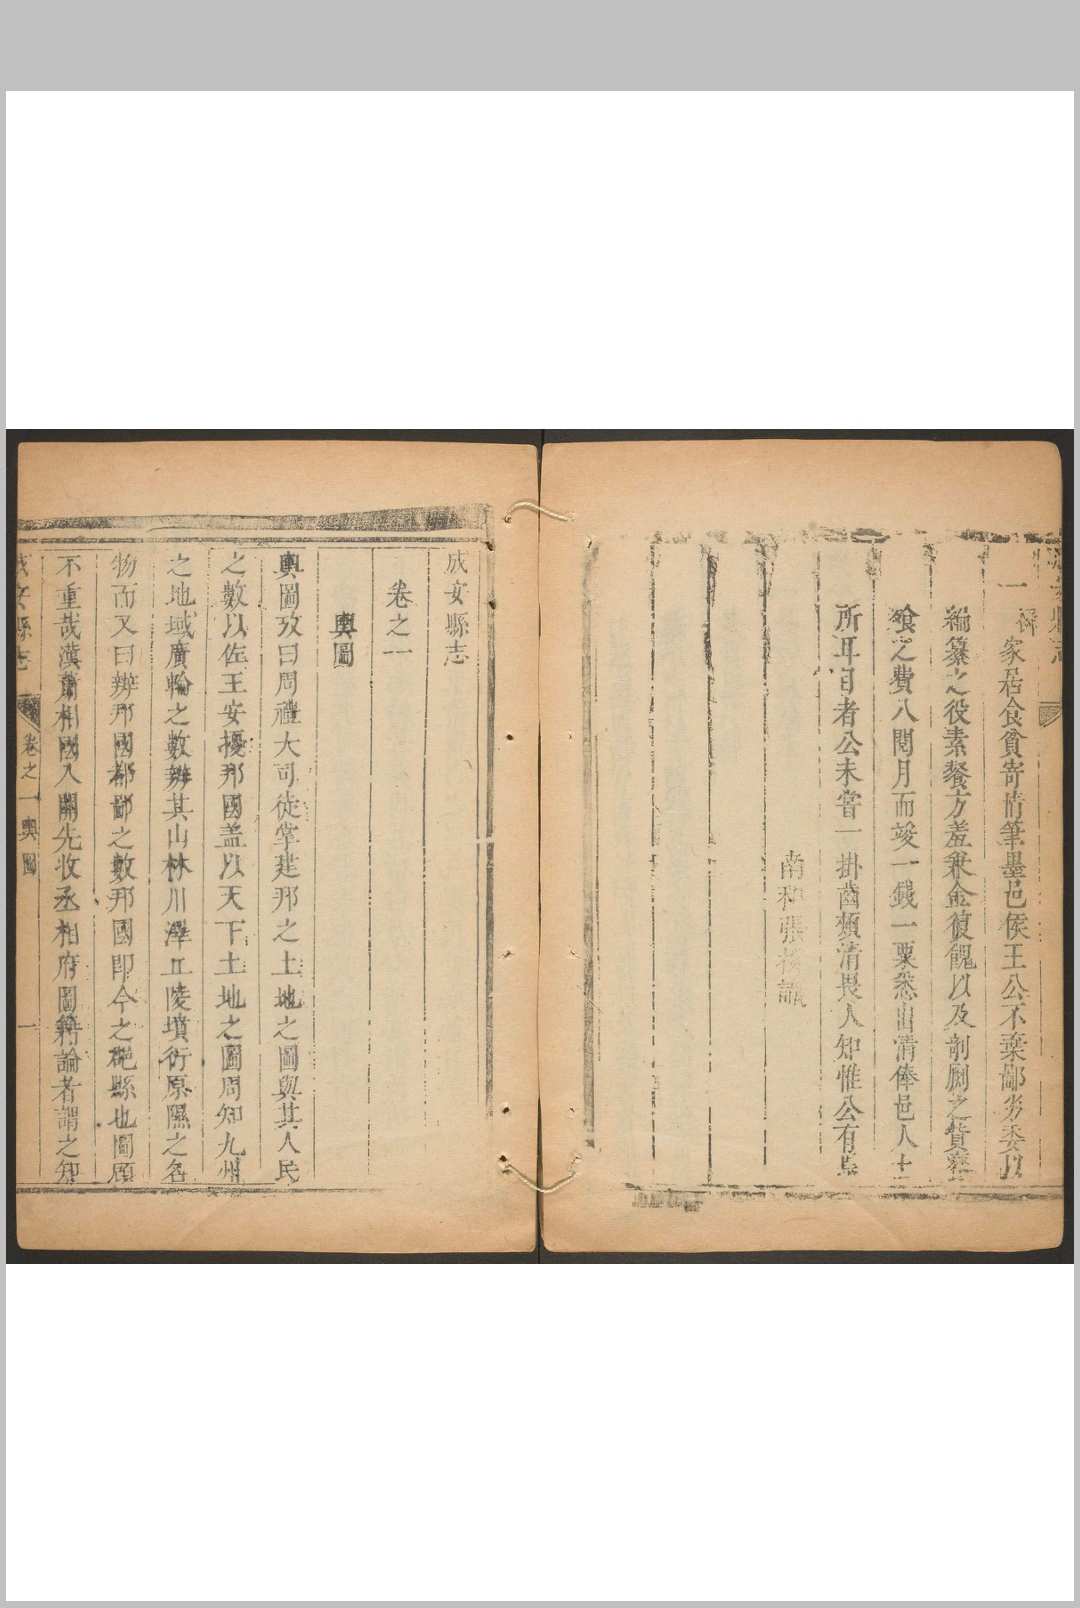 成安縣志
一
家居食貧寄情筆墨邑侯王公不棄鄙劣委以
編纂之役素餐方羞兼金復餽以及剞劂之費
飧之費八閱月而竣一錢一粟悉出清俸邑人士
所耳目者公未嘗一掛齒頰清畏人知惟公有焉
南和張
成安縣志
卷之一
輿圖
輿圖攷曰周禮大司徒掌建邦之土地之圖與其人民
之數以佐王安擾邦國盖以天下土地之圖周知九州
之地域廣輪之數辨其山林川澤丘陵墳衍原隰之名
物而又曰辨邦國都鄙之數邦國即今之郡縣也圖顧
不重哉漢蕭相國入關先收丞相府圖籍論者謂之知
成安縣志 卷之一輿圖 一